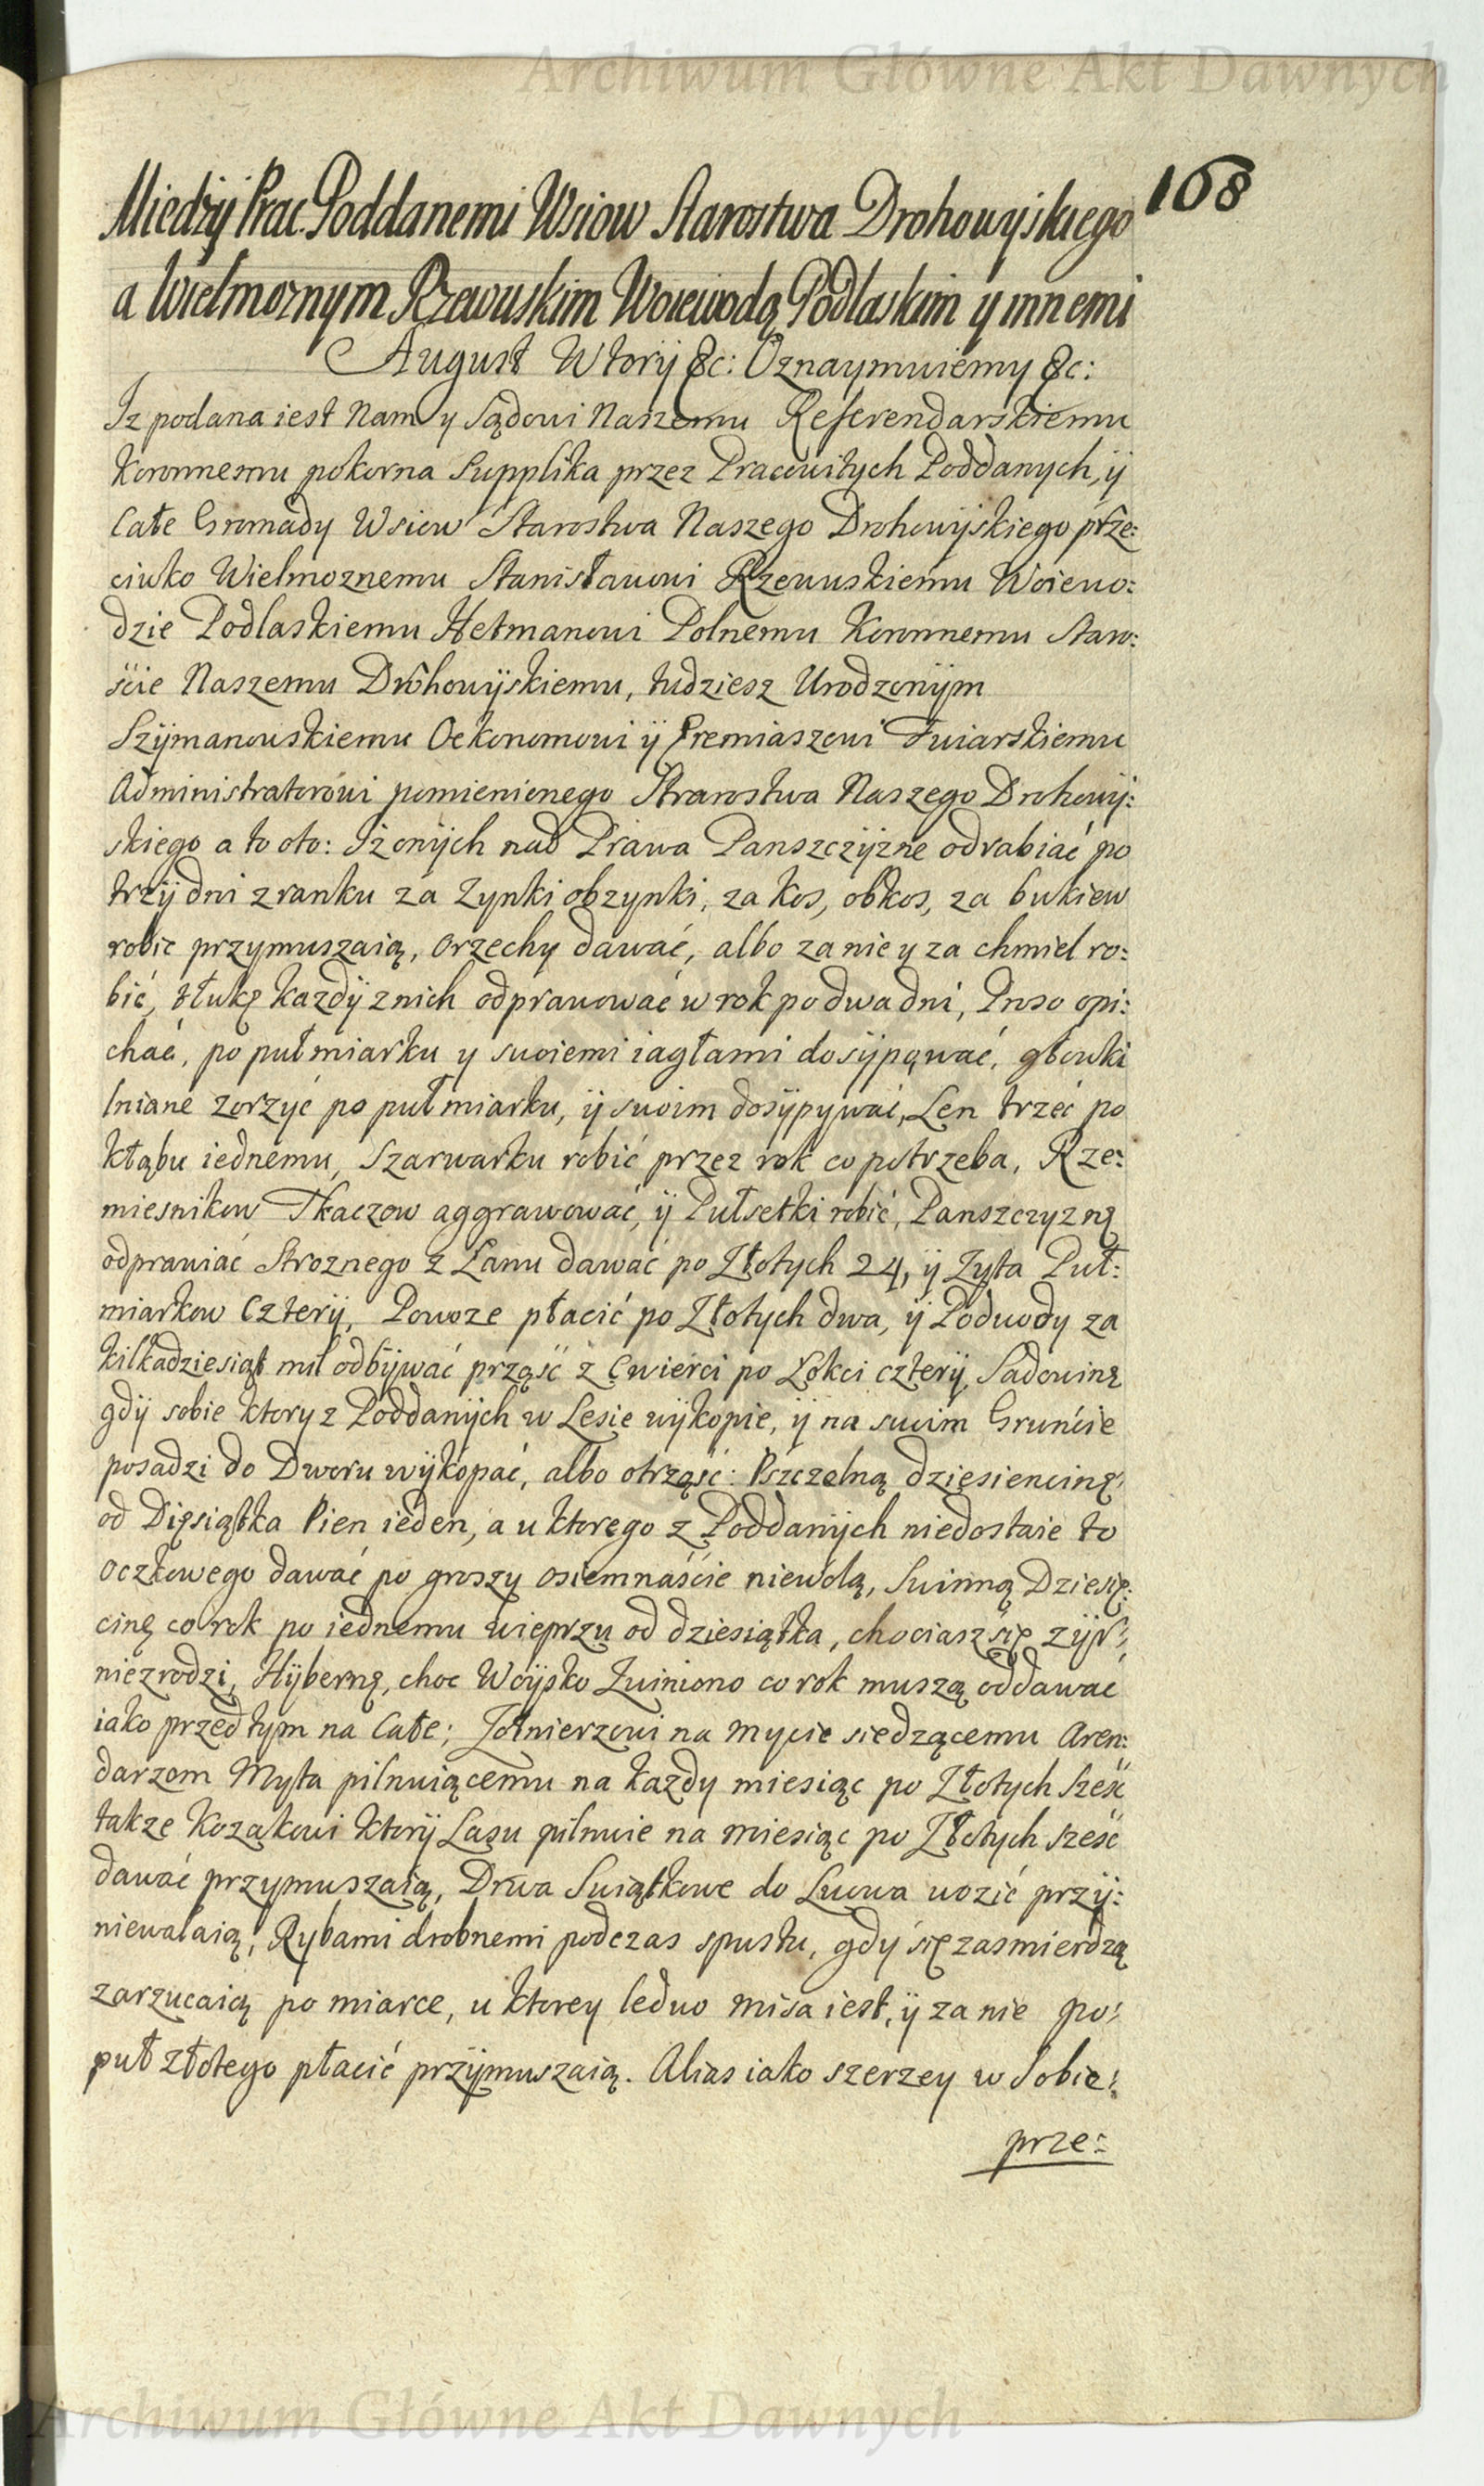 Archiwum Główne Akt Dawnych
168
Miedzÿ Prac. Poddanemi Wsiow Starostwa Drohowÿskiego
a Wielmoznym Rzewuskim Woiewodą Podlaskim y innemi
August Wtorÿ &c: Oznaymuiemy &c:
Iz podana iest Nam y Sądowi Naszemu Referendarskiemu
Koronnemu pokorna Supplika przez Pracowitych Poddanych, ÿ
Całe Gromady Wsiow Starostwa Naszego Drohowÿskiego prze:
ciwko Wielmoznemu Stanisławowi Rzewuskiemu Woiewo:
dzie Podlaskiemu Hetmanowi Polnemu Koronnemu Staro:
ście Naszemu Drohowÿskiemu, tudziesz Urodzonÿm
Szÿmanowskiemu Oekonomowi ÿ Jremiaszowi Fuiarskiemu
Administratorowi pomienionego Strarostwa Naszego Drohowÿ:
skiego a to oto: Iż onÿch nad Prawa Panszczÿzne odrabiać po
trzÿ dni z ranku za Zynki obzynki, za kos, obkos, za bukiew
robic przymuszaią, orzechy dawać, albo za nie y za chmiel ro:
bić, tłukę kazdÿ z nich odprawować w rok po dwa dni, Proso opi:
chać, po puł miarku y swoiemi iagłami dosÿpąwać, głowki
lniane zorzyć po puł miarku, ÿ swoim dosÿpywać, Len trzeć po
kłąbu iednemu, Szarwarku robić przez rok co potrzeba, Rze:
miesnikow Tkaczow aggrawować, ÿ Pułsetki robić, Panszczyzną
odprawiać Stroznego z Łanu dawać po Złotych 24, ÿ Zyta Puł:
miarkow Czterÿ, Powoze płacić po Złotych dwa, ÿ Podwody za
kilkadziesiąt mil odbÿwać prząść z Cwierci po Łokci czterÿ, Sadowinę
gdÿ sobie ktory z Poddanÿch w Lesie wÿkopie, ÿ na swoim Gruńcie
posadzi do Dworu wÿkopać, albo otrząść: Pszczelną dziesiencinę,
od Dięsiątka Pien ieden, a u ktorego z Poddanÿch niedostaie to
oczkowego dawać po groszy osiemnaście niewolą, Swinną Dziesię:
cinę co rok po iednemu wieprzu od dziesiątka, chociasz się zÿr
niezrodzi, Hÿberną, choc Woÿsko Zwiniono co rok muszą oddawać
iako przedtym na Całe; Zołnierzowi na mycie siedzącemu Aren:
darzom Myta pilnuiącemu na każdy miesiąc po Złotych sześć
takze Kozakowi ktorÿ Lasu pilnuie na miesiąc po Złotych sześć
dawać przymuszaią, Drwa Swiątkowe do Lwowa wozić przÿ:
niewalaią, Rybami drobnemi podczas spustu, gdÿ się zasmierdzą
zarzucaią po miarce, u ktorey ledwo misa iest, ÿ za nie po:
puł złotego płacić przÿmuszaią. Alias iako szerzey w Sobie:
prze:
Archiwum Główne Akt Dawnych